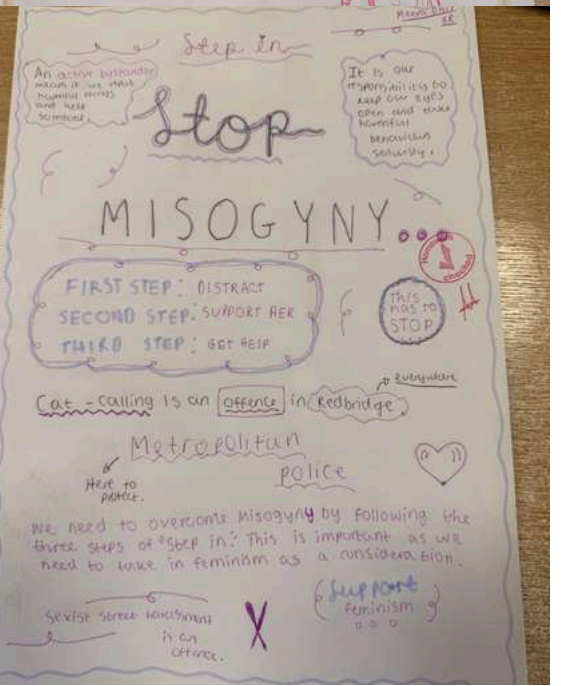 Step in
An active bystander
means if we
harmful things
and help
someone.
It is our
responsibility to
keep our eyes
open and take
harmful
behaviours
seriously.
Stop
MISOGYNY...
FIRST STEP: DISTRACT
SECOND STEP: SUPPORT HER
THIRD STEP: GET HELP
This
has to
STOP
1
checked
everywhere
Cat-calling is an offence in Redbridge.
Metropolitan
police
Here to
protect.
We need to overcome misogyny by following the
three steps of "Step in." This is important as we
need to take in feminism as a consideration.
Support
feminism
Sexist street harassment
is an
offence.